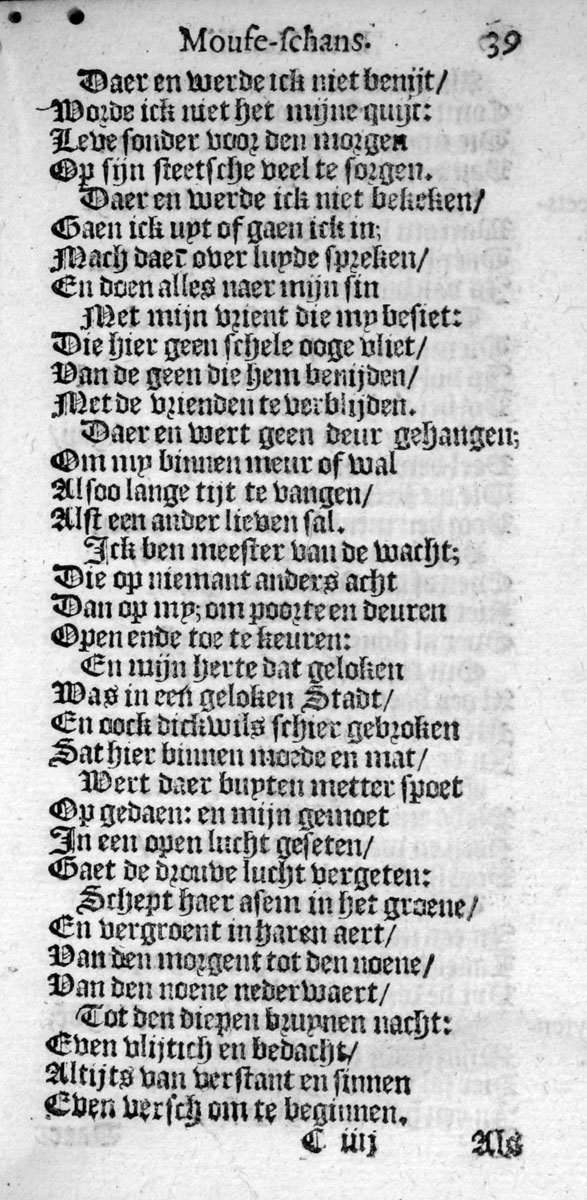 Mouse-schans. 39
Daer en werde ick niet benijt/
Worde ick niet het mijne quijt:
Leve sonder voor den morgen
Op sijn steetsche veel te sorgen.
Daer en werde ick niet bekeken/
Gaen ick uyt of gaen ick in;
Mach daer over luyde spreken/
En doen alles naer mijn sin
Met mijn vrient die my besiet:
Die hier geen schele ooge vliet/
Van de geen die hem benijden/
Met de vrienden te verblijden.
Daer en wert geen deur gehangen;
Om my binnen meur of wal
Alsoo lange tijt te vangen/
Alst een ander lieven sal.
Ick ben meester van de wacht;
Die op niemant anders acht
Dan op my; om poorte en deuren
Open ende toe te keuren:
En mijn herte dat geloken
Was in een geloken Stadt/
En oock dickwils schier gebroken
Sat hier binnen moede en mat/
Wert daer buyten metter spoet
Op gedaen: en mijn gemoet
In een open lucht geseten/
Gaet de drouve lucht vergeten:
Schept haer asem in het groene/
En vergroent in haren aert/
Van den morgent tot den noene/
Van den noene nederwaert/
Tot den diepen bruynen nacht:
Even vlijtich en bedacht/
Altijts van verstant en sinnen
Even versch om te beginnen.
C iiij Als